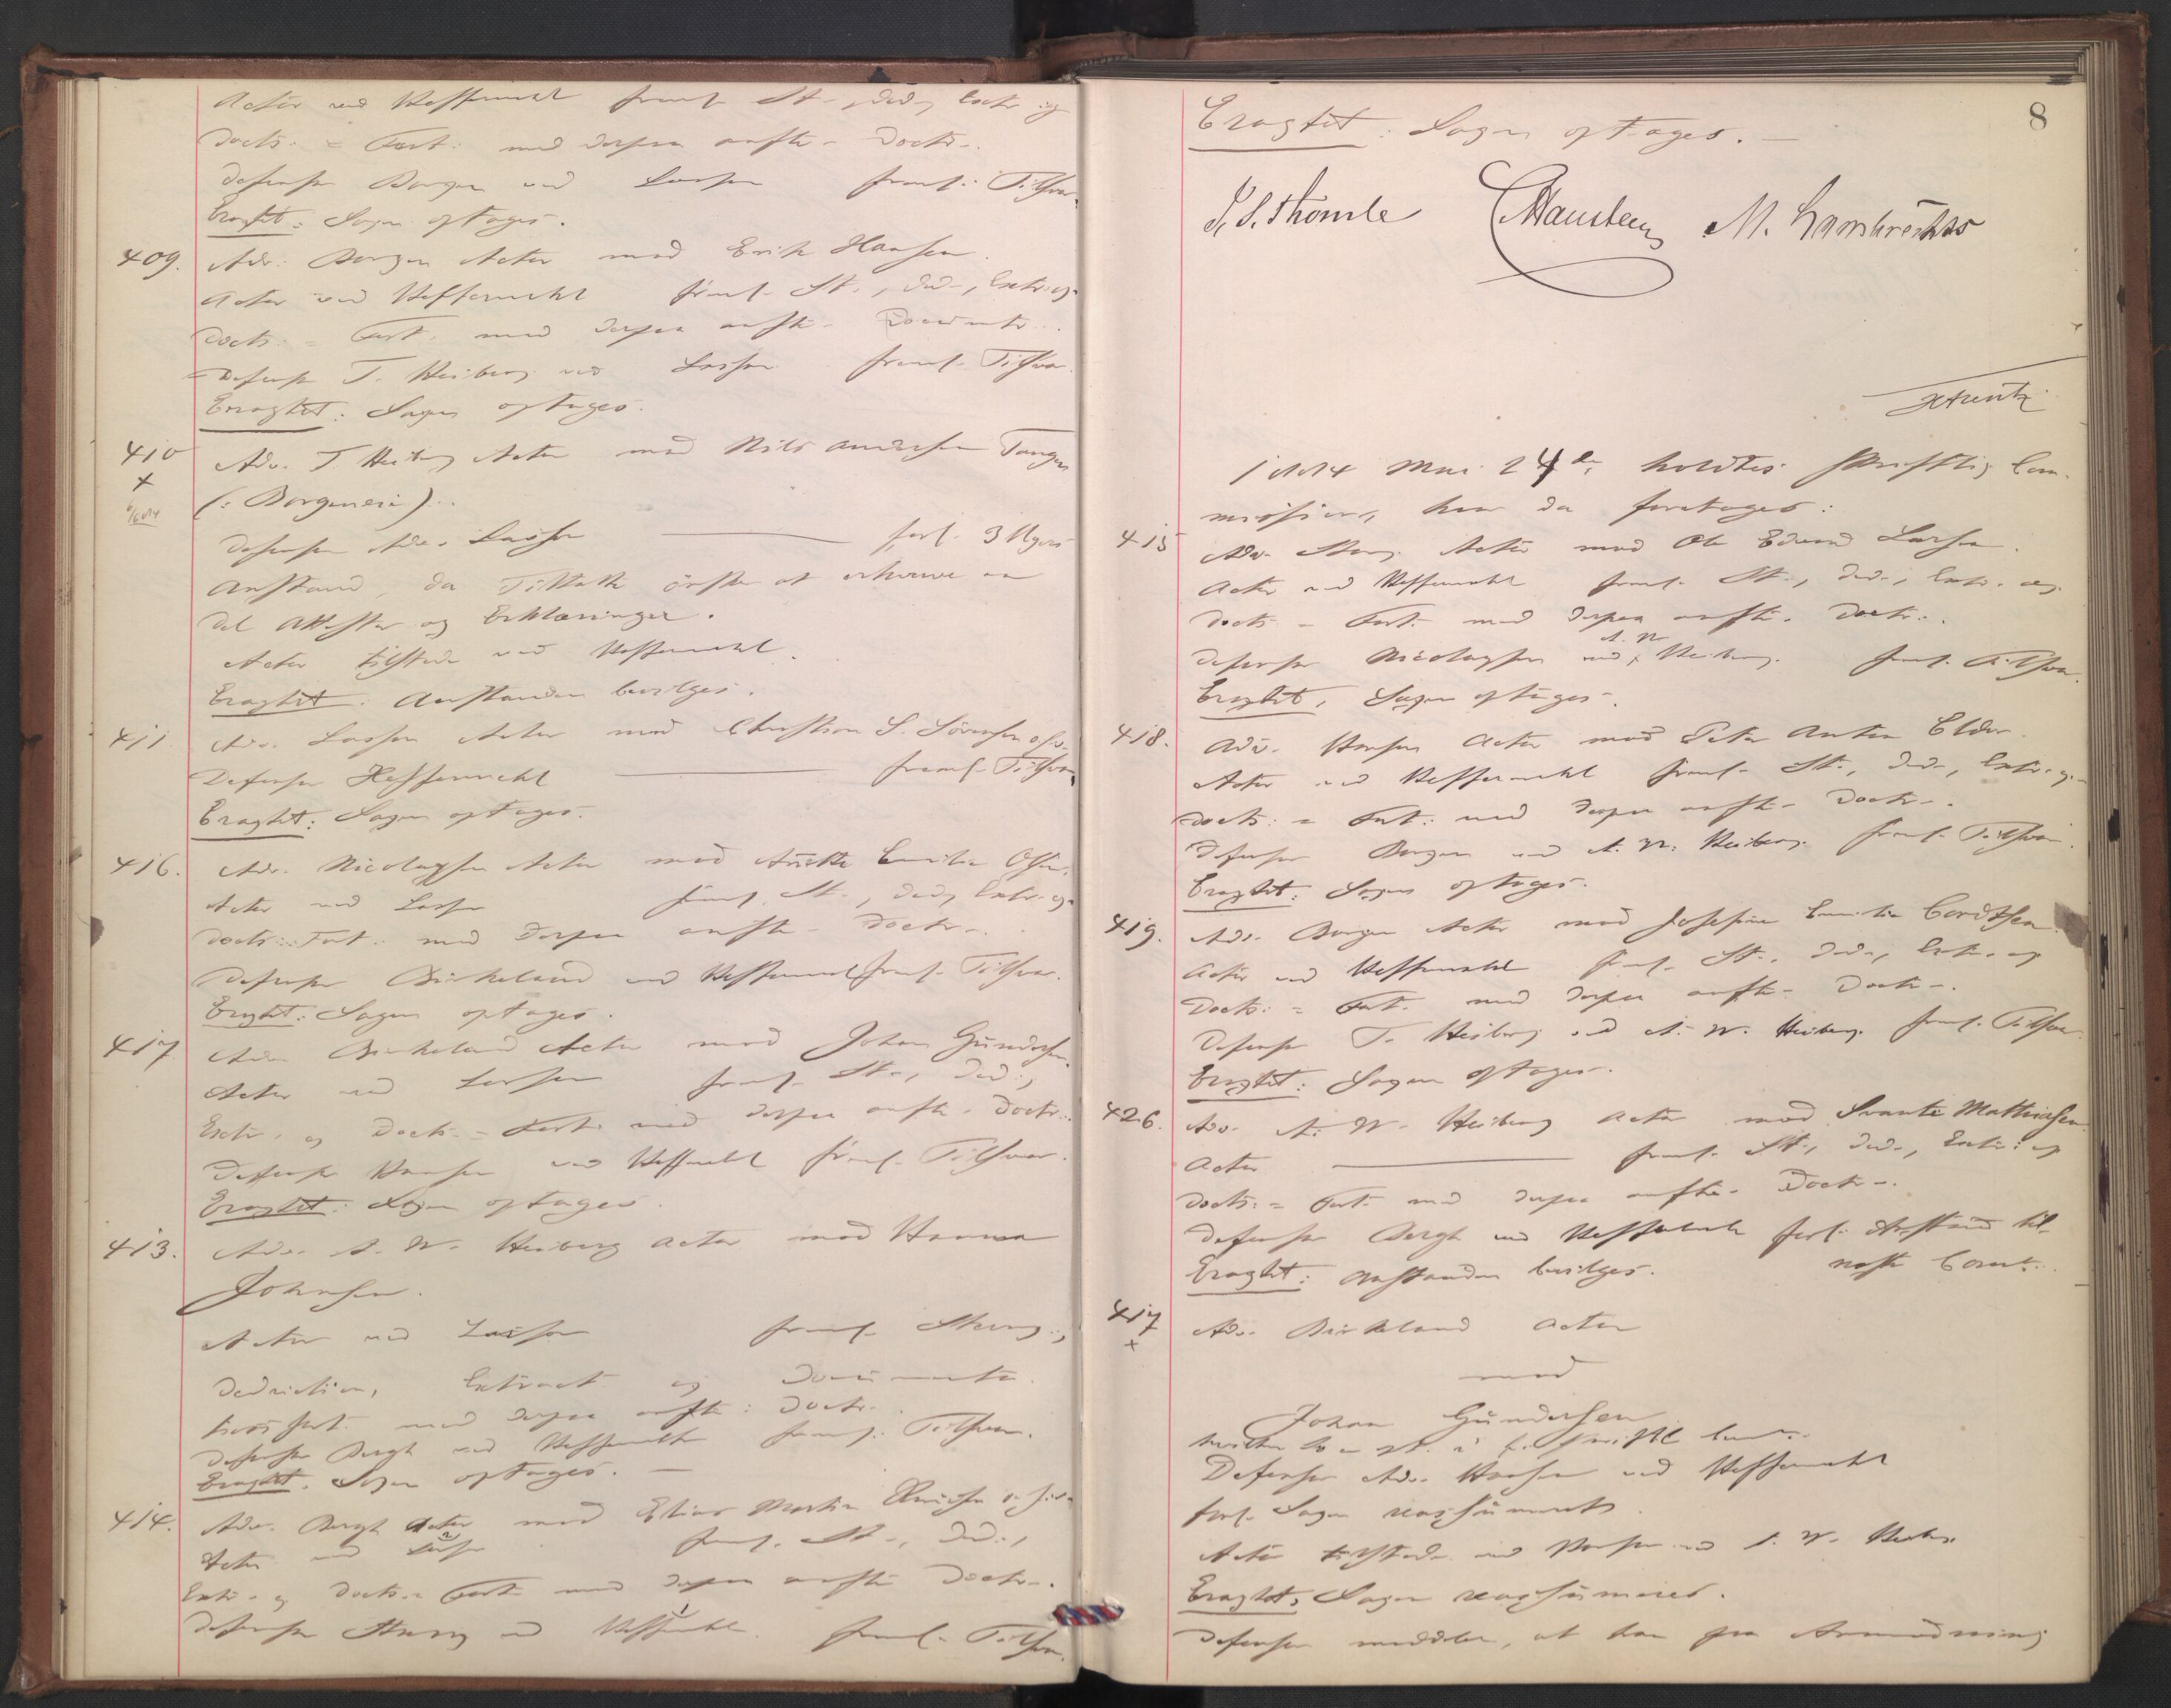 Actor ved Heffermehl freml. St., Ded., Extr. og
Docts. = Fort. med derpaa anfte. Docts.
Defensor Bergen ved Lassen freml. Tilsvar.
Eragtet: Sagen optages.
409. Adv. Bergen Actor mod Erik Hansen.
Actor ved Heffermehl freml. St., Ded., Extr. og
Docts. = Fort. med derpaa anfte. Documentr.
Defensor T. Heiberg ved Lassen freml. Tilsvar.
Eragtet: Sagen optages.
410 Adv. T. Heiberg Actor mod Nils Andersen Tangen
+ (: Borgeneie).
Defensor Adv. Lassen forl. 3 Ugers
Anstand, da Tiltalte ønsker at erhverve en
Del Attester og Erklæringer.
Actor tilstede ved Heffermehl.
Eragtet: Anstanden bevilges.
411 Adv. Lassen Actor mod Christian S. Sörensen
Defensor Heffermehl freml. Tilsvar.
Eragtet: Sagen optages.
416. Adv. Nicolaysen Actor mod Anette Emilie Olsen.
Actor ved Lassen freml. St., Ded., Extr. og
Docts. = Fort. med derpaa anfte. Docts.
Defensor Birkeland ved Heffermehl freml. Tilsvar.
Eragtet: Sagen optages.
417 Adv. Birkeland Actor mod Johan Gundersen.
Actor ved Lassen freml. St., Ded.,
Extr. og Docts. = Fort. med derpaa anfte. Docts.
Defensor Hansen ved Heffermehl freml. Tilsvar.
Eragtet: Sagen optages.
413. Adv. A. W. Heiberg Actor mod Hanna
Johnsen.
Actor ved Lassen freml. Stevng.,
Deduction, Extract og Documente
fort. med derpaa anfte. Docts.
Defensor Bergh ved Heffermehl freml. Tilsvar.
Eragtet: Sagen optages. —
414. Adv. Bergh Actor mod Elias Martin
Actor ved Lassen freml. St., Ded.,
Extr. og Docts. = Fort. med derpaa anfte Docts.
Defensor Stang ved Heffermehl freml. Tilsvar.
8
Eragtet: Sagen optages. —
M. Lambrechts
1874 Mai 24de holdtes skriftlig Com-
mission, hvor da foretoges:
415 Adv. Stang Actor mod Ole Edvard Larsen.
Actor ved Heffermehl freml. St., Ded., Extr. og
Docts. = Fort. med derpaa anfte. Docts.
Defensor Nicolaysen ved A. W. Heiberg freml. Tilsvar.
Eragtet: Sagen optages.
418. Adv. Hansen Actor mod Peter Anton
Actor ved Heffermehl freml. St., Ded., Extr. og
Docts. = Fort. med derpaa anfte. Docts.
Defensor Bergen ved A. W. Heiberg freml. Tilsvar.
Eragtet: Sagen optages.
419. Adv. Bergen Actor mod Josefine Emilie
Actor ved Heffermehl freml. St., Ded., Extr. og
Docts. = Fort. med derpaa anfte. Docts.
Defensor T. Heiberg ved A. W. Heiberg freml. Tilsvar.
Eragtet: Sagen optages.
426. Adv. A. W. Heiberg Actor mod Svante Mathiasen
Actor freml. St., Ded., Extr. og
Docts. = Fort. med derpaa anfte. Docts.
Defensor Bergh ved Heffermehl forl. Anstand til
Eragtet: Anstanden bevilges. næste Comm.
417 Adv. Birkeland Actor
+ mod
Johan Gundersen
Defensor Adv. Hansen ved Heffermehl
forl. Sagen reassumeret.
Actor tilstede ved A. W. Heiberg
Eragtet: Sagen reassumeres.
Defensor meddeler, at han paa Anmodning